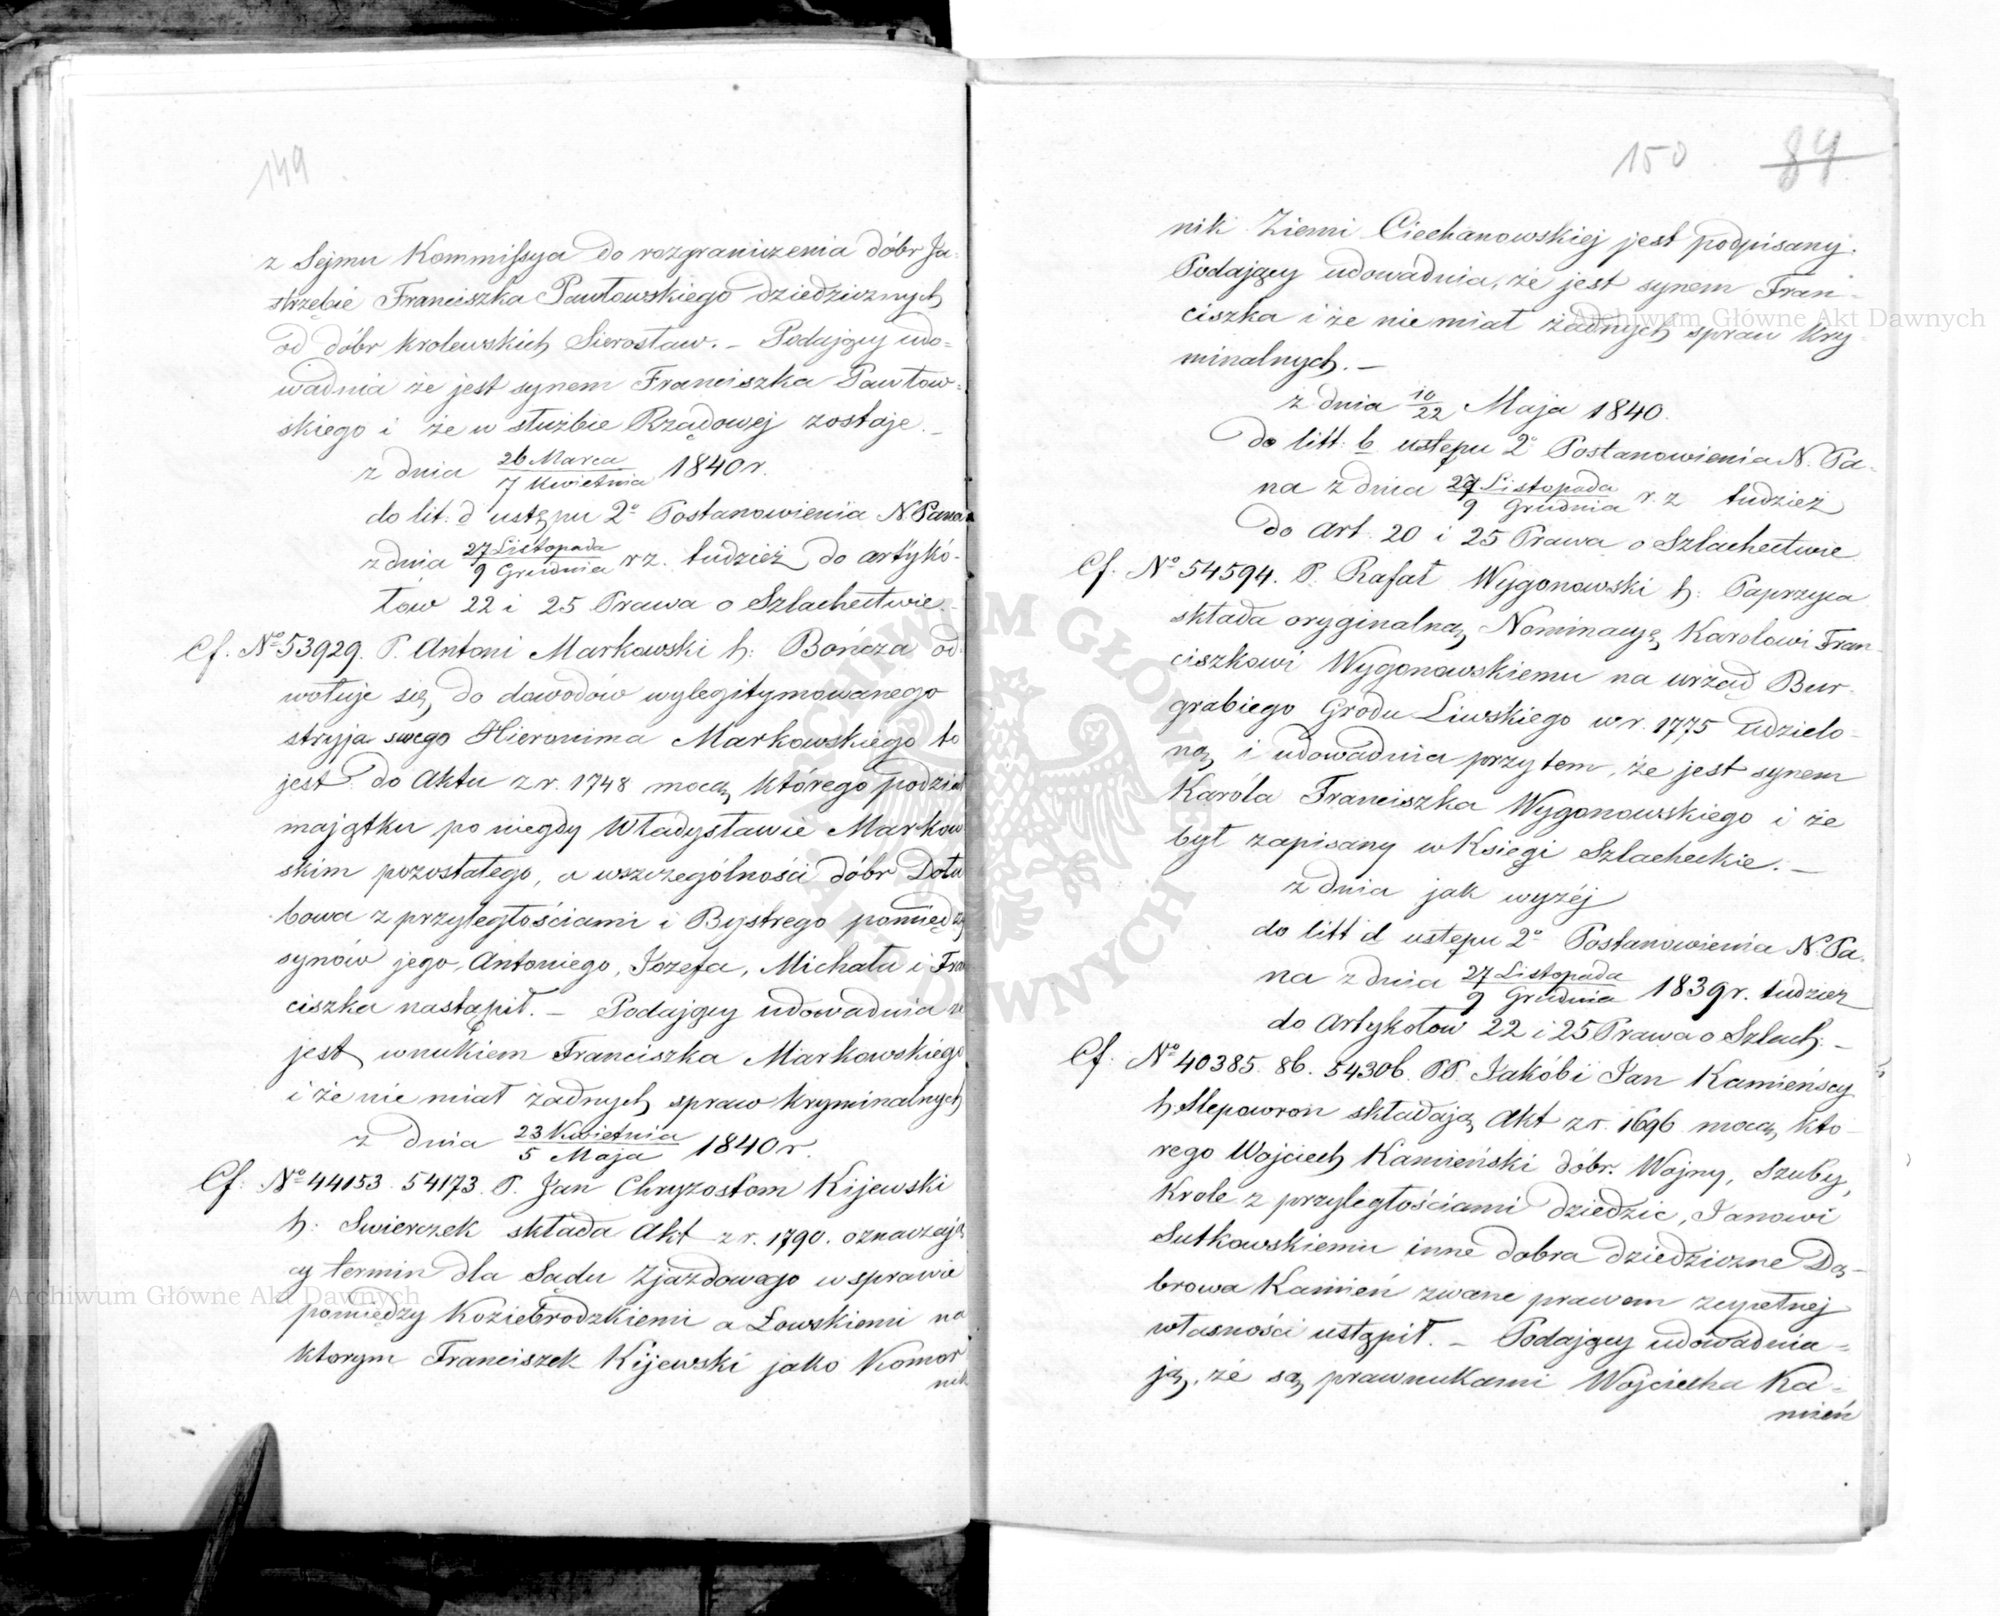 149
z Sejmu Kommissya do rozgraniczenia dóbr Ja-
strzębie Franciszka Pawłowskiego dziedzicznych
od dóbr krolewskich Sierosław. – Podający udo=
wadnia że jest synem Franciszka Pawłow=
skiego i że w służbie Rządowej zostaje. –
z dnia 26 Marca / 7 Kwietnia 1840 r.
do lit: d ustępu 2º Postanowienia N. Pana
z dnia 27 Listopada / 9 Grudnia r z. tudzież do artykó-
łów 22 i 25 Prawa o Szlachectwie. –
Cf. Nº 53929. P. Antoni Markowski h: Bończa od-
wołuje się do dowodów wylegitymowanego
stryja swego Hieronima Markowskiego to
jest do Aktu z r. 1748 mocą którego podział
majątku po niegdy Władysławie Markow
skim pozostałego, a w szczególności dóbr Dołu
bowa z przyległościami i Bystrego pomiędzy
synów jego, Antoniego, Jozefa, Michała i Fran
ciszka nastąpił. – Podający udowadnia że
jest wnukiem Franciszka Markowskiego
i że nie miał żadnych spraw kryminalnych
z dnia 23 Kwietnia / 5 Maja 1840 r.
Cf: Nº 44153. 54173. P. Jan Chryzostom Kijewski
h: Swierczek składa Akt z r. 1790. oznaczają
cy termin dla Sądu Zjazdowego w sprawie
pomiędzy Koziebrodzkiemi a Łowskiemi na
ktorym Franciszek Kijewski jako Komor
nik
150 84
nik Ziemi Ciechanowskiej jest podpisany.
Podający udowadnia, że jest synem Fran-
ciszka i że nie miał żadnych spraw kry-
minalnych. –
z dnia 10/22 Maja 1840.
do litt: b ustępu 2º Postanowienia N. Pa-
na z dnia 27 Listopada / 9 Grudnia r. z tudzież
do Art. 20 i 25 Prawa o Szlachectwie
Cf. Nº 54594. P. Rafał Wygonowski h: Paprzyca
składa oryginalną Nominacyę Karolowi Fran-
ciszkowi Wygonowskiemu na urząd Bur-
grabiego Grodu Liwskiego w r. 1775 udzielo-
ną i udowadnia przytem, że jest synem
Karóla Franciszka Wygonowskiego i że
był zapisany w Księgi Szlacheckie. –
z dnia jak wyżéj
do litt d ustępu 2º Postanowienia N. Pa-
na z dnia 27 Listopada / 9 Grudnia 1839 r. tudzież
do Artykołow 22 i 25 Prawa o Szlach: –
Cf. Nº 40385. 86. 54306. PP. Jakób i Jan Kamieńscy
h. Slepowron składają Akt z r. 1696 mocą kto-
rego Wojciech Kamieński dóbr: Wojny, Szuby,
Krole z przyległościami dziedzic, Janowi
Sutkowskiemu inne dobra dziedziczne Dą-
browa Kamień zwane prawem zupełnej
własności ustąpił. – Podający udowadnia=
ją, że są prawnukami Wojciecha Ka=
mień
Archiwum Główne Akt Dawnych
Archiwum Główne Akt Dawnych
ARCHIWUM GŁÓWNE AKT DAWNYCH